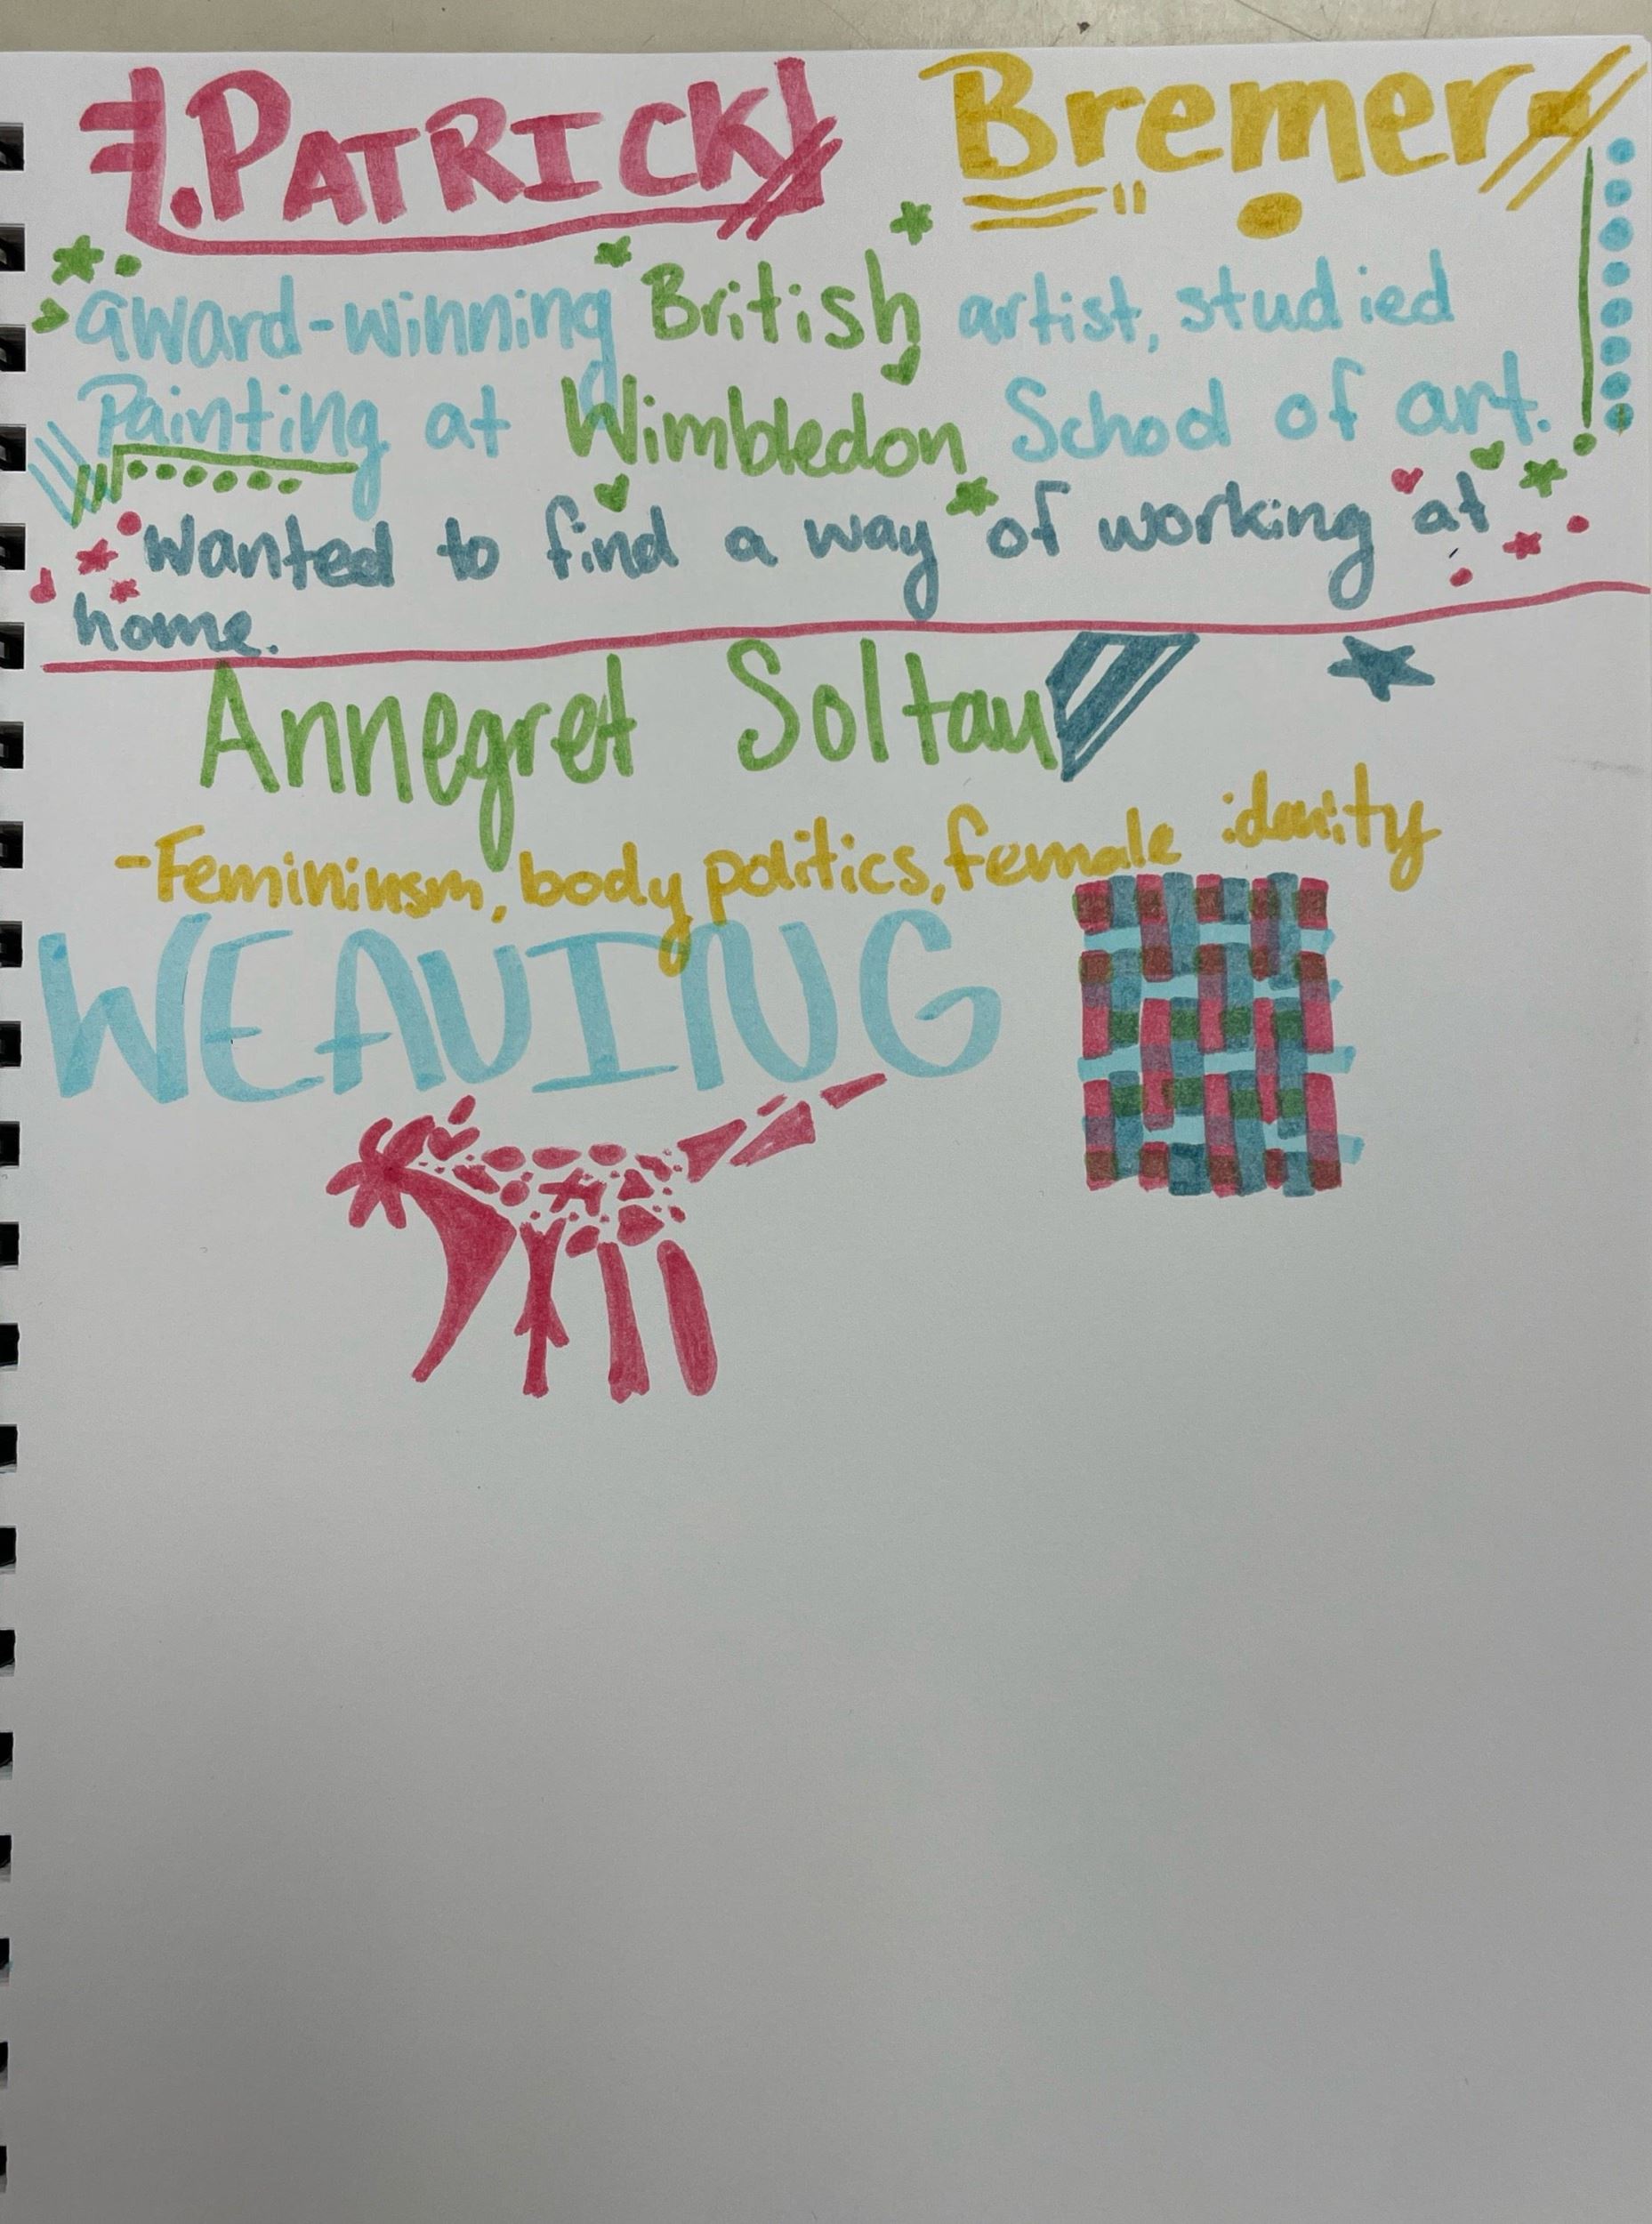 PATRICK Bremer
award-winning British artist, studied
Painting at Wimbledon School of art.
Wanted to find a way of working at
home.
Annegret Soltau
-Femininsm, body politics, female idenity
WEAVING